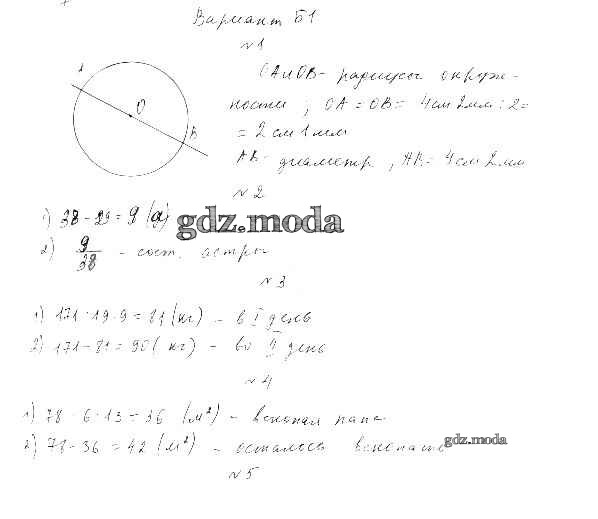 Вариант Б1
№1
A
O
B
OA и OB - радиусы окруж-
ности, OA = OB = 4см 2мм : 2 =
= 2 см 1 мм
AB - диаметр, AB = 4 см 2 мм
№2
1) 38 - 29 = 9 (а)
gdz.moda
2) 9/38 - сост. астры
№3
1) 171 : 19 · 9 = 81 (кг) - в I день
2) 171 - 81 = 90 (кг) - во II день
№4
1) 78 : 13 = 36 (м²) - вскопал папа
2) 78 - 36 = 42 (м²) - осталось вскопать
gdz.moda
№5